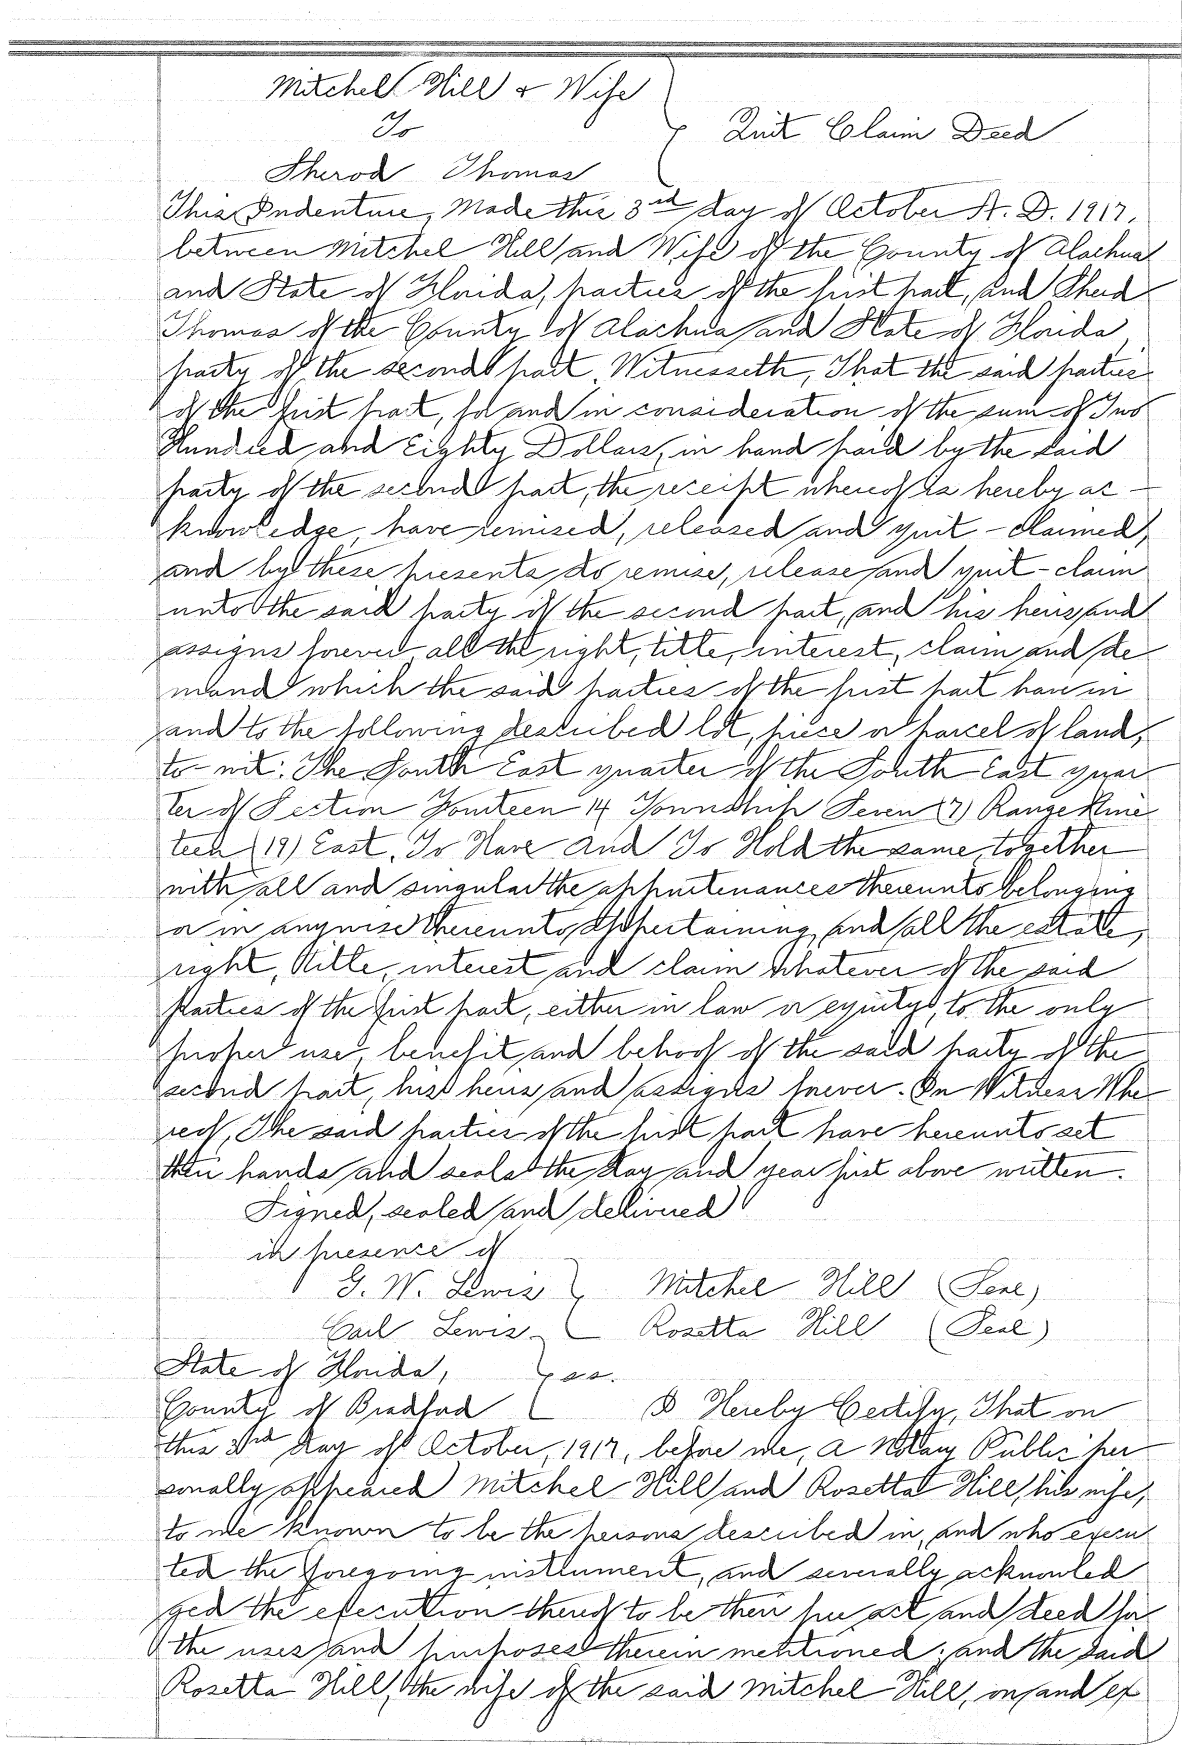 Mitchel Hill & Wife
To
Quit Claim Deed
Sherod Thomas
This Indenture, Made this 3rd day of October A. D. 1917,
between Mitchel Hill and Wife of the County of Alachua
and State of Florida, parties of the first part, and Sherd
Thomas of the County of Alachua and State of Florida,
party of the second part, Witnesseth, That the said parties
of the first part, for and in consideration of the sum of Two
Hundred and Eighty Dollars, in hand paid by the said
party of the second part, the receipt whereof is hereby ac-
knowledge, have remised, released and quit-claimed,
and by these presents do remise, release and quit-claim
unto the said party of the second part, and his heirs and
assigns forever all the right, title, interest, claim and de
mand which the said parties of the first part have in
and to the following described lot, piece or parcel of land,
to-wit: The South East quarter of the South East quar
ter of Section Fourteen 14 Township Seven (7) Range Nine
teen (19) East. To Have And To Hold the same together
with all and singular the appurtenances thereunto belonging
or in anywise thereunto appertaining, and all the estate,
right, title, interest and claim whatever of the said
parties of the first part, either in law or equity, to the only
proper use, benefit and behoof of the said party of the
second part, his heirs and assigns forever. In Witness Whe
reof, The said parties of the first part have hereunto set
their hands and seals the day and year first above written.
Signed, sealed and delivered
in presence of
G. W. Lewis } Mitchel Hill (Seal)
Carl Lewis } Rosetta Hill (Seal)
State of Florida, } ss.
County of Bradford I Hereby Certify, That on
this 3rd day of October, 1917, before me, a Notary Public per
sonally appeared Mitchel Hill and Rosetta Hill, his wife,
to me known to be the persons described in, and who execu
ted the foregoing instrument, and severally acknowled
ged the execution thereof to be their free act and deed for
the uses and purposes therein mentioned; and the said
Rosetta Hill, the wife of the said Mitchel Hill, on and ex